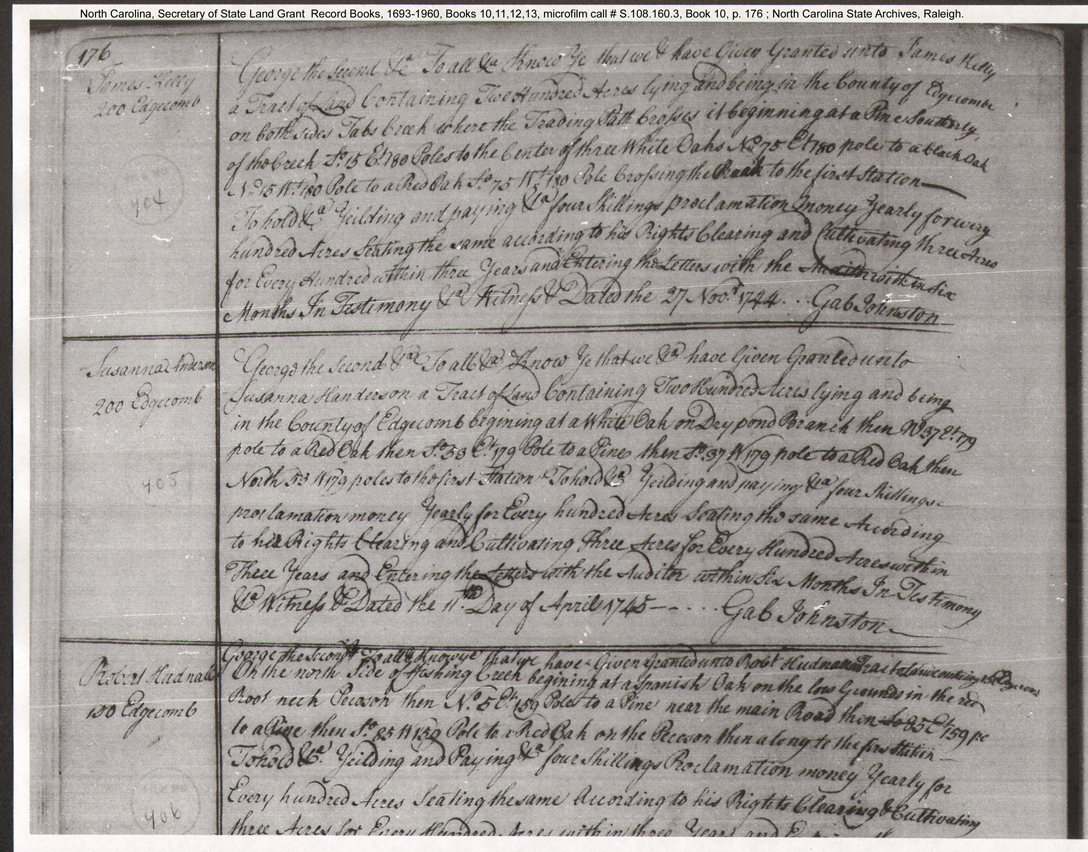 North Carolina, Secretary of State Land Grant Record Books, 1693-1960, Books 10,11,12,13, microfilm call # S.108.160.3, Book 10, p. 176 ; North Carolina State Archives, Raleigh.
176
James Kelly
200 Edgecomb
404
George the Second &c To all &a Know Ye that we &c have Given Granted unto James Kelly
a Tract of Land Containing Two Hundred Acres lying and being in the County of Edgcombe
on both sides Tabs Creek where the Trading Path Crosses it beginning at a Pine Southerly,
of the Creek So. 15 Et. 180 Poles to the Center of three White Oaks No. 75 Et 180 pole to a black Oak
No. 15 Wt. 180 Pole to a Red Oak So. 75 Wt. 180 Pole Crossing the to the first Station
To hold &a Yeilding and paying &a four Shillings proclamation money Yearly for every
hundred Acres Seating the same according to his Rights Clearing and Cultivating three Acres
for Every Hundred within three Years and Entering the Letters with the Auditor within Six
Months In Testimony &c Witness & Dated the 27 Nov. 1744 . . . Gab Johnston
Susanna Anderson
200 Edgecomb
405
George the Second &ca To all &a Know Ye that we &a have Given Granted unto
Susanna Handerson a Tract of Land Containing Two Hundred Acres lying and being
in the County of Edgecomb begining at a White Oak on Dry pond Branch then No. 37 Et. 179
pole to a Red Oak then So. 53 Et. 179 Pole to a Pine then So. 37 W 179 pole to a Red Oak then
North 53 W 179 poles to the first Station To hold &a Yeilding and paying &a four Shillings
proclamation money Yearly for Every hundred Acres Seating the same Acording
to her Rights Clearing and Cultivating Three Acres for Every Hundred Acres within
Three Years and Entering the Letters with the Auditor within Six Months In Testimony
&c Witness & Dated the 11th Day of April 1745 - - . . . . Gab Johnston
Robert Hudnall
150 Edgecomb
406
George the Second & To all & Know ye that we have Given Granted unto Robt Hudnall
On the north Side of Fishing Creek begining at a Spanish Oak on the low Grounds in the red
Root neck Pecoson then No. 5 Et. 159 Poles to a Pine near the main Road then So 85 Et 159 po
to a Pine then So. 85 W 159 Pole to a Red Oak on the Pecoson then along to the first Station
To hold &a. Yeilding and Paying &a four Shillings Proclamation money Yearly for
Every hundred Acres Seating the same According to his Rights Clearing & Cultivating
three Acres for Every Hundred Acres within three Years and